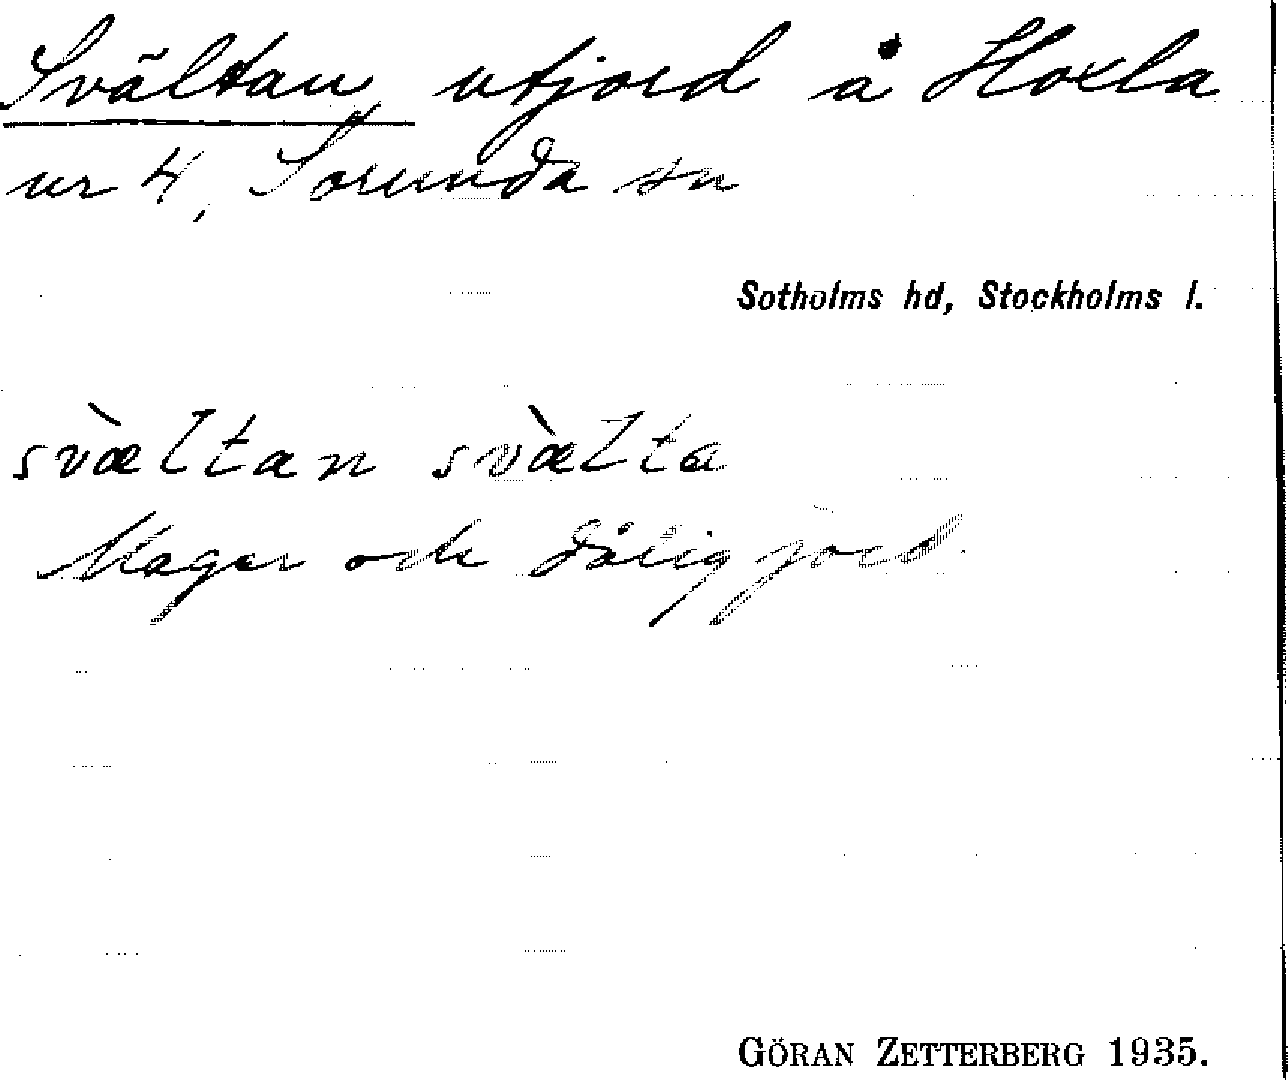 Svältan, utjord å Hoxla
nr 4, Sorunda sn
Sotholms hd, Stockholms l.
svæ̀ltan svæ̀lta
Mager och dålig jord.
GÖRAN ZETTERBERG 1935.